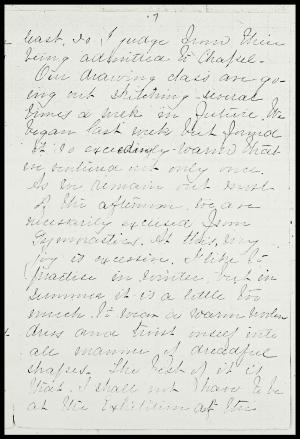 7
least. So I judge from their
being admitted to Chapel.
Our drawing class are go-
ing out sketching several
times a week in future. We
began last week but found
it so exceedingly warm that
we ventured out only once.
As we remain out most
of the afternoon, we are
necessarily excused from
Gymnastics. At this, my
joy is excessive. I like to
practise in winter, but in
summer it is a little too
much to wear a warm woolen
dress and twist oneself into
all manner of dreadful
shapes. The best of it is
that I shall not have to be
at the Exhibition at the